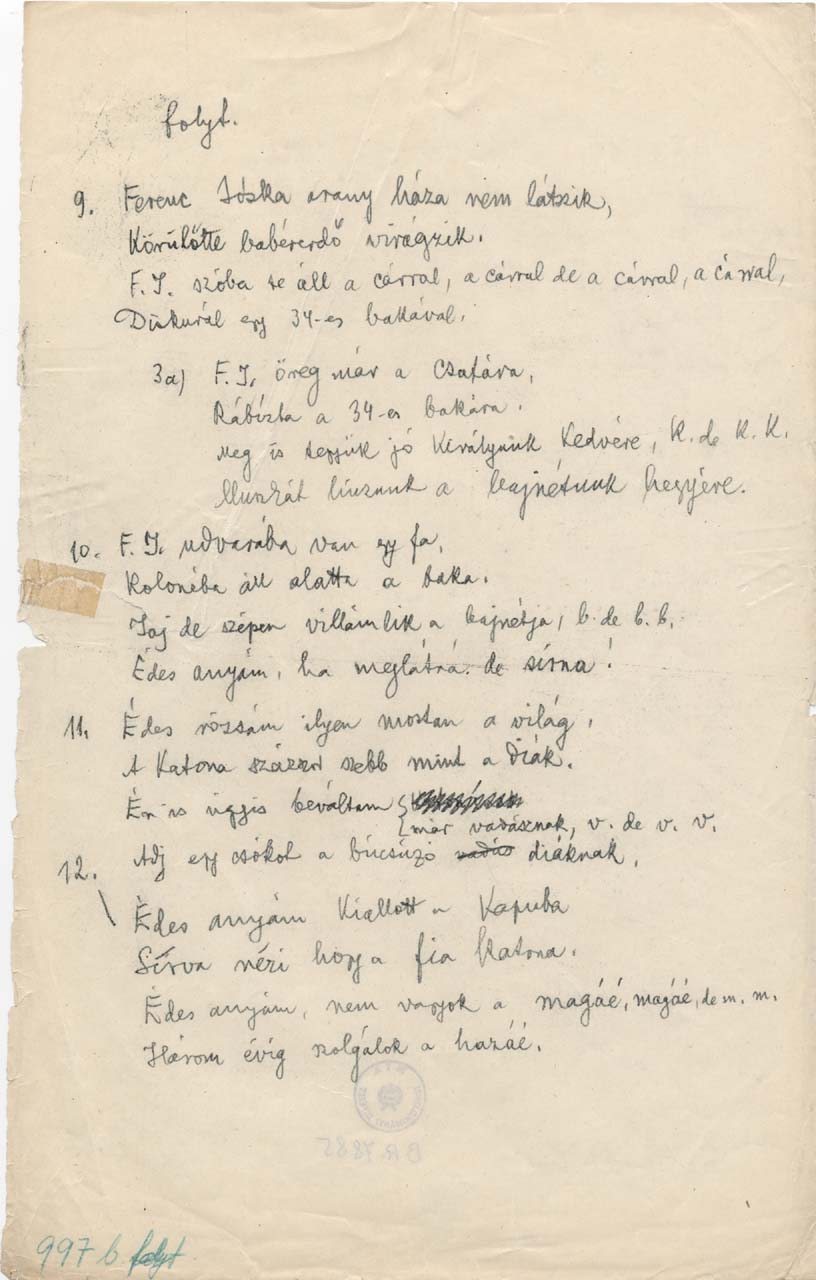 folyt.
9. Ferenc Jóska arany háza nem látszik,
Körülötte babérerdő virágzik.
F. J. szóba se áll a cárral, a cárral de a cárral, a cárral,
Diskurál egy 34-es bakával.
3a) F. J. öreg már a csatára,
Rábízta a 34-es bakára.
Meg is tesszük jó királyunk kedvére, k. de k. k.
Muszkát húzunk a bajnétunk hegyére.
10. F. J. udvarába van egy fa,
Kolonéba áll alatta a baka.
Jaj de szépen villámlik a bajnétja, b. de b. b.
Édes anyám, ha meglátná de sírna!
11. Édes rózsám ilyen mostan a világ,
A katona százszor szebb mint a diák.
Én is úgyis beváltam
már vadásznak, v. de v. v.
Adj egy csókot a búcsúzó vadás diáknak.
12.
Édes anyám kiállott a kapuba
Sírva nézi hogy a fia katona.
Édes anyám, nem vagyok a magáé, magáé, de m. m.
Három évig szolgálok a hazáé.
997 b folyt